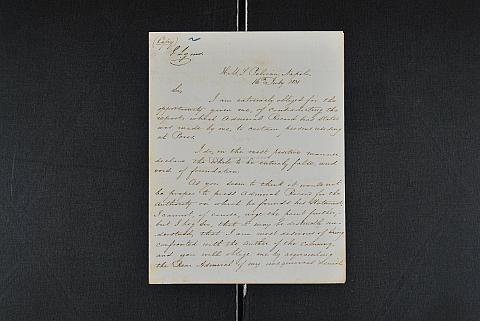 (Copy)
H.M.S. Pelican, Napoli
16th July 1831
Sir,
I am extremely obliged for the
opportunity given me, of contradicting the
report, which Admiral Ricord has stated
was made by me, to certain persons residing
at Poros.
I do, in the most positive manner,
declare the whole to be entirely false, and
void of foundation.
As you seem to think it would not
be proper to press Admiral Ricord for the
authority on which he founds his statement,
I cannot, of course, urge the point further;
but I beg Sir, that it may be distinctly un-
derstood, that I am most desirous of being
confronted with the author of the calumny,
and you will oblige me by
the Rear Admiral of my unequivocal denial